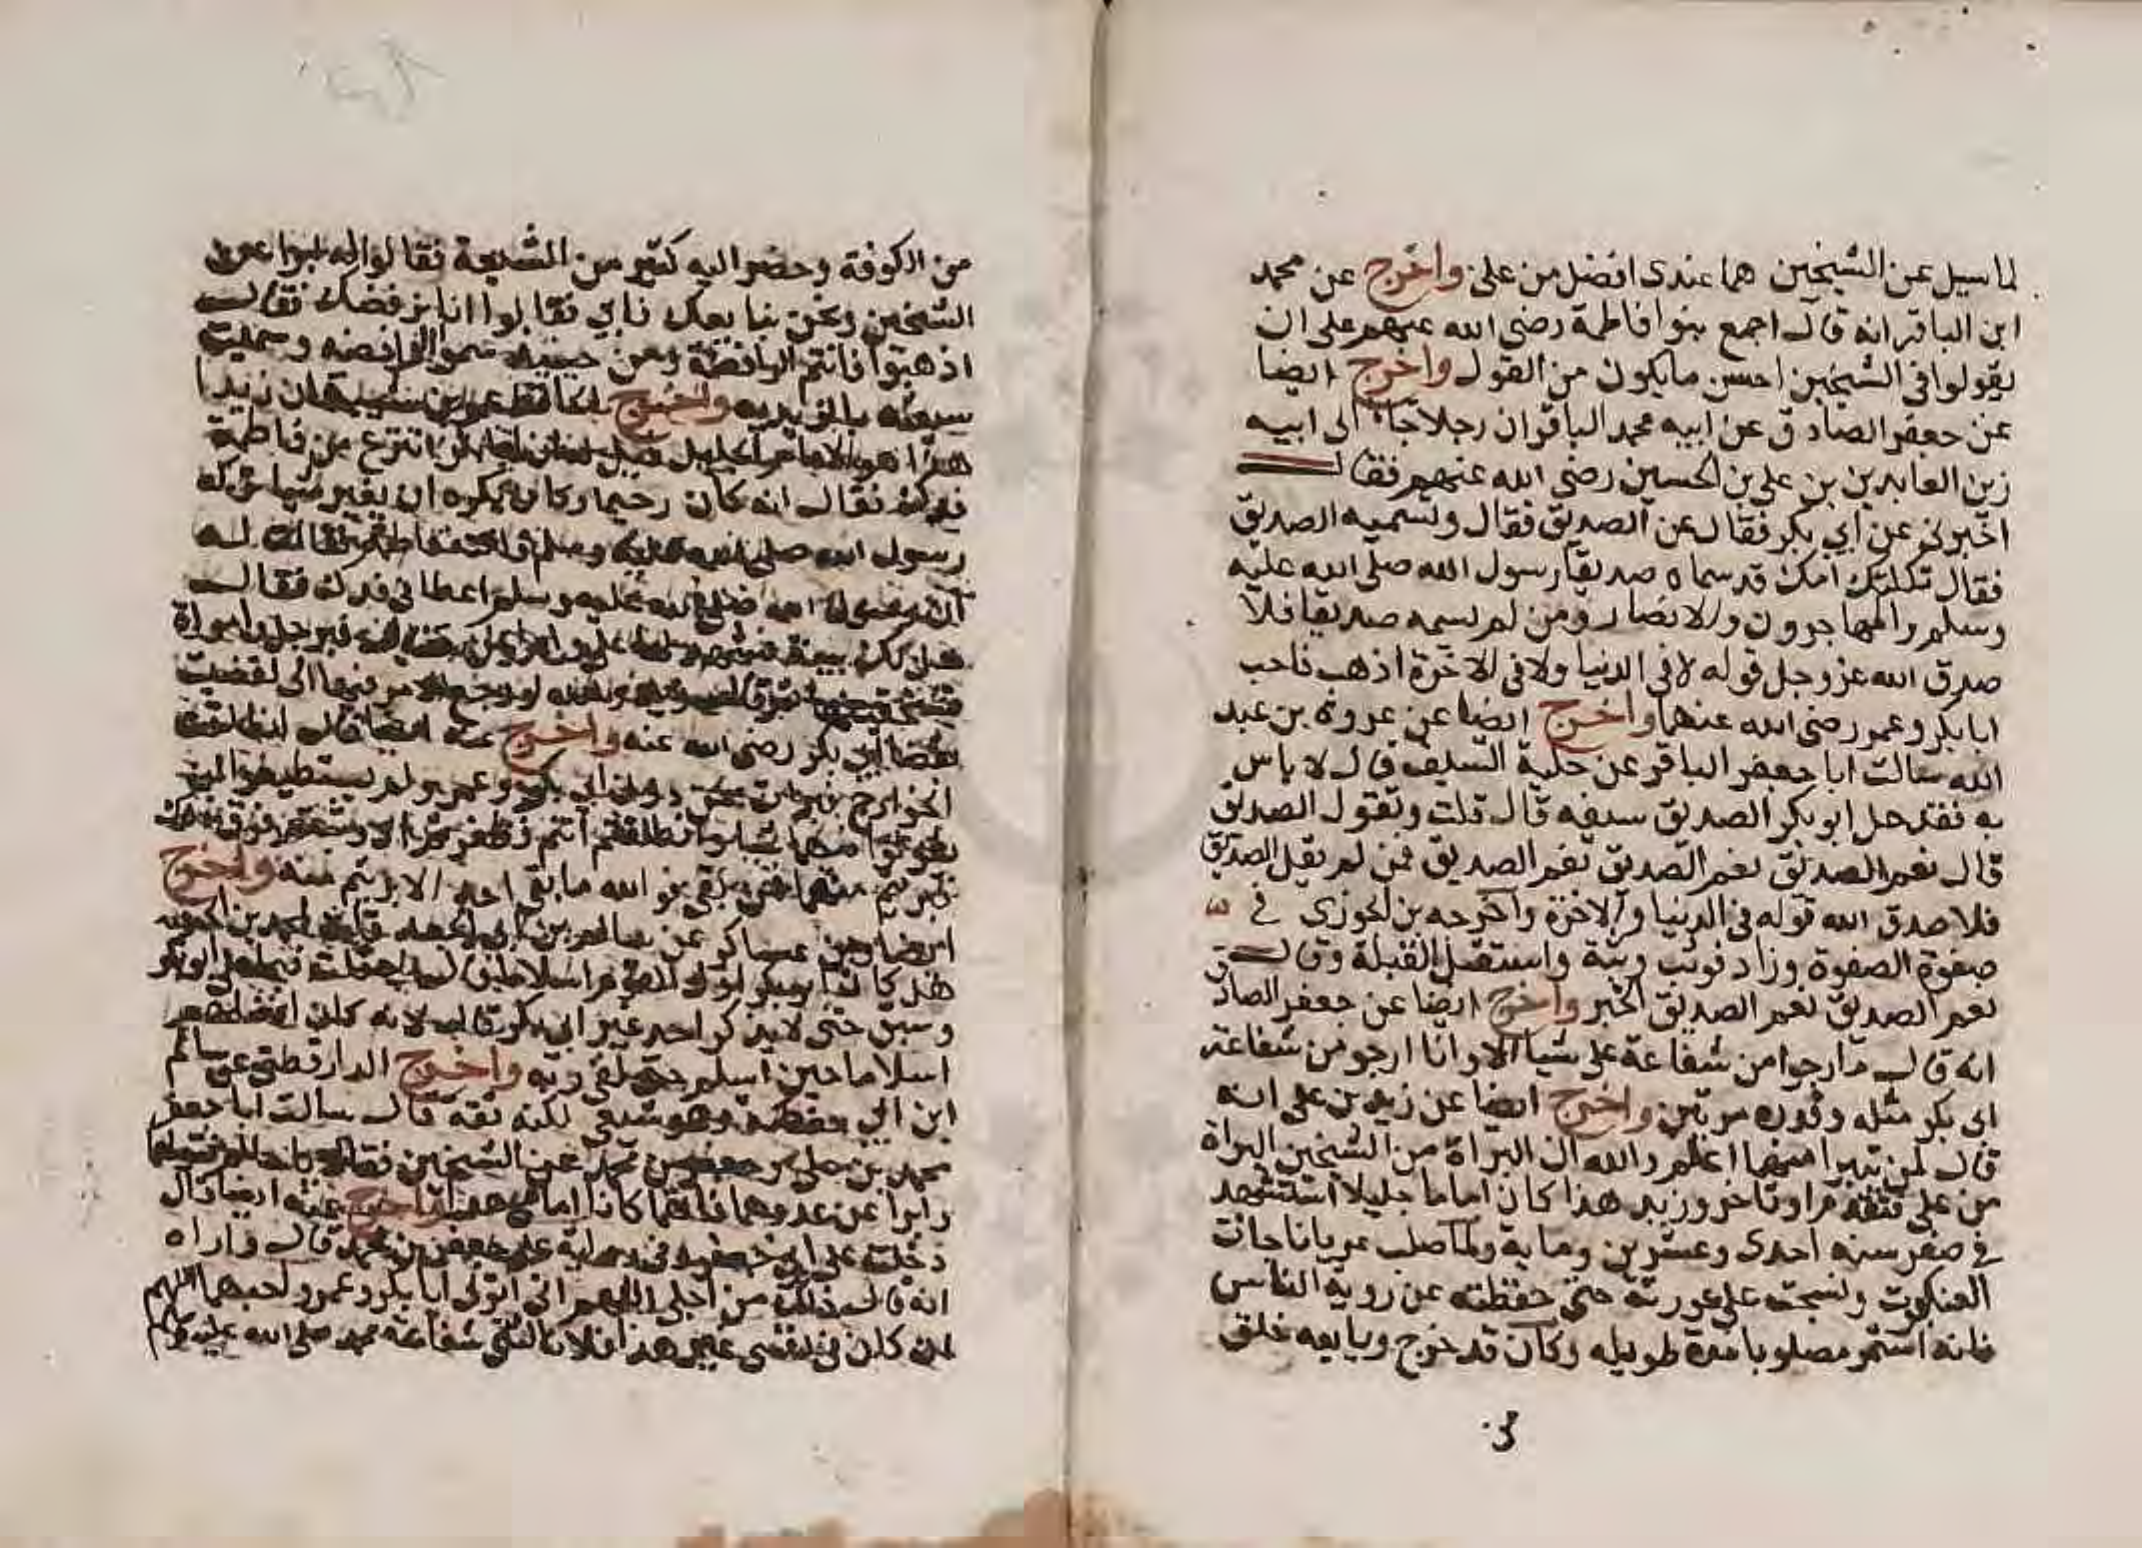 لما سيل عن الشيخين هما عندي افضل من علي واخرج عن محمد
ابن الباقر انه قال اجمع بنوا فاطمة رضي الله عنهم على ان
يقولوا في الشيخين احسن ما يكون من القول واخرج ايضا
عن جعفر الصادق عن ابيه محمد الباقر ان رجلا جاء الى ابيه
زين العابدين بن علي بن الحسين رضي الله عنهم فقال
اخبرني عن ابي بكر فقال عن الصديق فقال وتسميه الصديق
فقال ثكلتك امك قد سماه صديقا رسول الله صلى الله عليه
وسلم والمهاجرون والانصار ومن لم يسمه صديقا فلا
صدق الله عز وجل قوله لا في الدنيا ولا في الاخرة اذهب فاحب
ابا بكر وعمر رضي الله عنهما واخرج ايضا عن عروة بن عبد
الله سالت ابا جعفر الباقر عن حلية السيف قال لا باس
به فقد حلى ابو بكر الصديق سيفه قال قلت وتقول الصديق
قال نعم الصديق نعم الصديق نعم الصديق فمن لم يقل الصديق
فلا صدق الله قوله في الدنيا والاخرة واخرجه بن الجوزي في
صفوة الصفوة وزاد فوثب وثبة واستقبل القبلة وقال
نعم الصديق نعم الصديق الخبر واخرج ايضا عن جعفر الصادق
انه قال ما ارجوا من شفاعة علي شيا الا وانا ارجو من شفاعة
ابي بكر مثله ولقد مرتين واخرج ايضا عن زيد بن علي انه
قال لمن تبرا منهما اعلم والله ان البراة من الشيخين البراة
من علي فتقدم او تاخر وزيد هذا كان اماما جليلا استشهد
في صفر سنه احدى وعشرين وماية ولما صلب عريانا جات
العنكبوت ونسجت على عورته حتى حفظته عن روية الناس
فانه استمر مصلوبا مدة طويله وكان قد خرج وبايعه خلق
من الكوفة وحضر اليه كثير من الشيعة فقالوا له ابرا عن
الشيخين ونحن نبايعك فابى فقالوا انا نرفضك فقال
اذهبوا فانتم الرافضة ومن حينيذ سموا الرافضه وسميت
شيعته بالزيديه واخرج الحافظ عمر بن شبة ان زيدا
هذا هو الامام الجليل قيل له ان ابا بكر انتزع من فاطمة
فدك فقال انه كان رحيما وكان يكره ان يغير شيا تركه
رسول الله صلى الله عليه وسلم فاتته فاطمة فقالت له
ان رسول الله صلى الله عليه وسلم اعطاني فدك فقال
هل لك بينة فشهد لها علي وام ايمن فقال لها فبرجل وامراة
تستحقيها ثم قال زيد والله لو رجع الامر فيها الى لقضيت
بقضا ابي بكر رضي الله عنه واخرج عنه ايضا قال انطلقت
الخوارج فبرئت ممن دون ابي بكر وعمر ولم يستطيعوا ان
يقولوا فيهما شيا وانطلقتم انتم فظفرتم اي وثبتم فوق ذلك
فبرئتم منهما فمن بقي فو الله ما بقي احد الا برئتم منه واخرج
ايضا بن عساكر عن سالم بن ابي الجعد قلت لمحمد بن الحنفيه
هل كان ابو بكر اول القوم اسلاما قال لا قلت فبما علا ابو بكر
وسبق حتى لا يذكر احد غير ابي بكر قال لانه كان افضلهم
اسلاما حين اسلم حتى لقي ربه واخرج الدارقطني عن سالم
ابن ابي حفصة وهو شيعي لكنه ثقة قال سالت ابا جعفر
محمد بن علي وجعفر بن محمد عن الشيخين فقالا يا سالم تولهما
وابرا عن عدوهما فانهما كانا امامي هدى واخرج عنه ايضا قال
دخلت على ابي جعفر وفي رواية على جعفر بن محمد قال واراه
انه قال ذلك من اجلي اللهم اني اتولى ابا بكر وعمر واحبهما اللهم
ان كان في نفسي غير هذا فلا نالتني شفاعة محمد صلى الله عليه وسلم